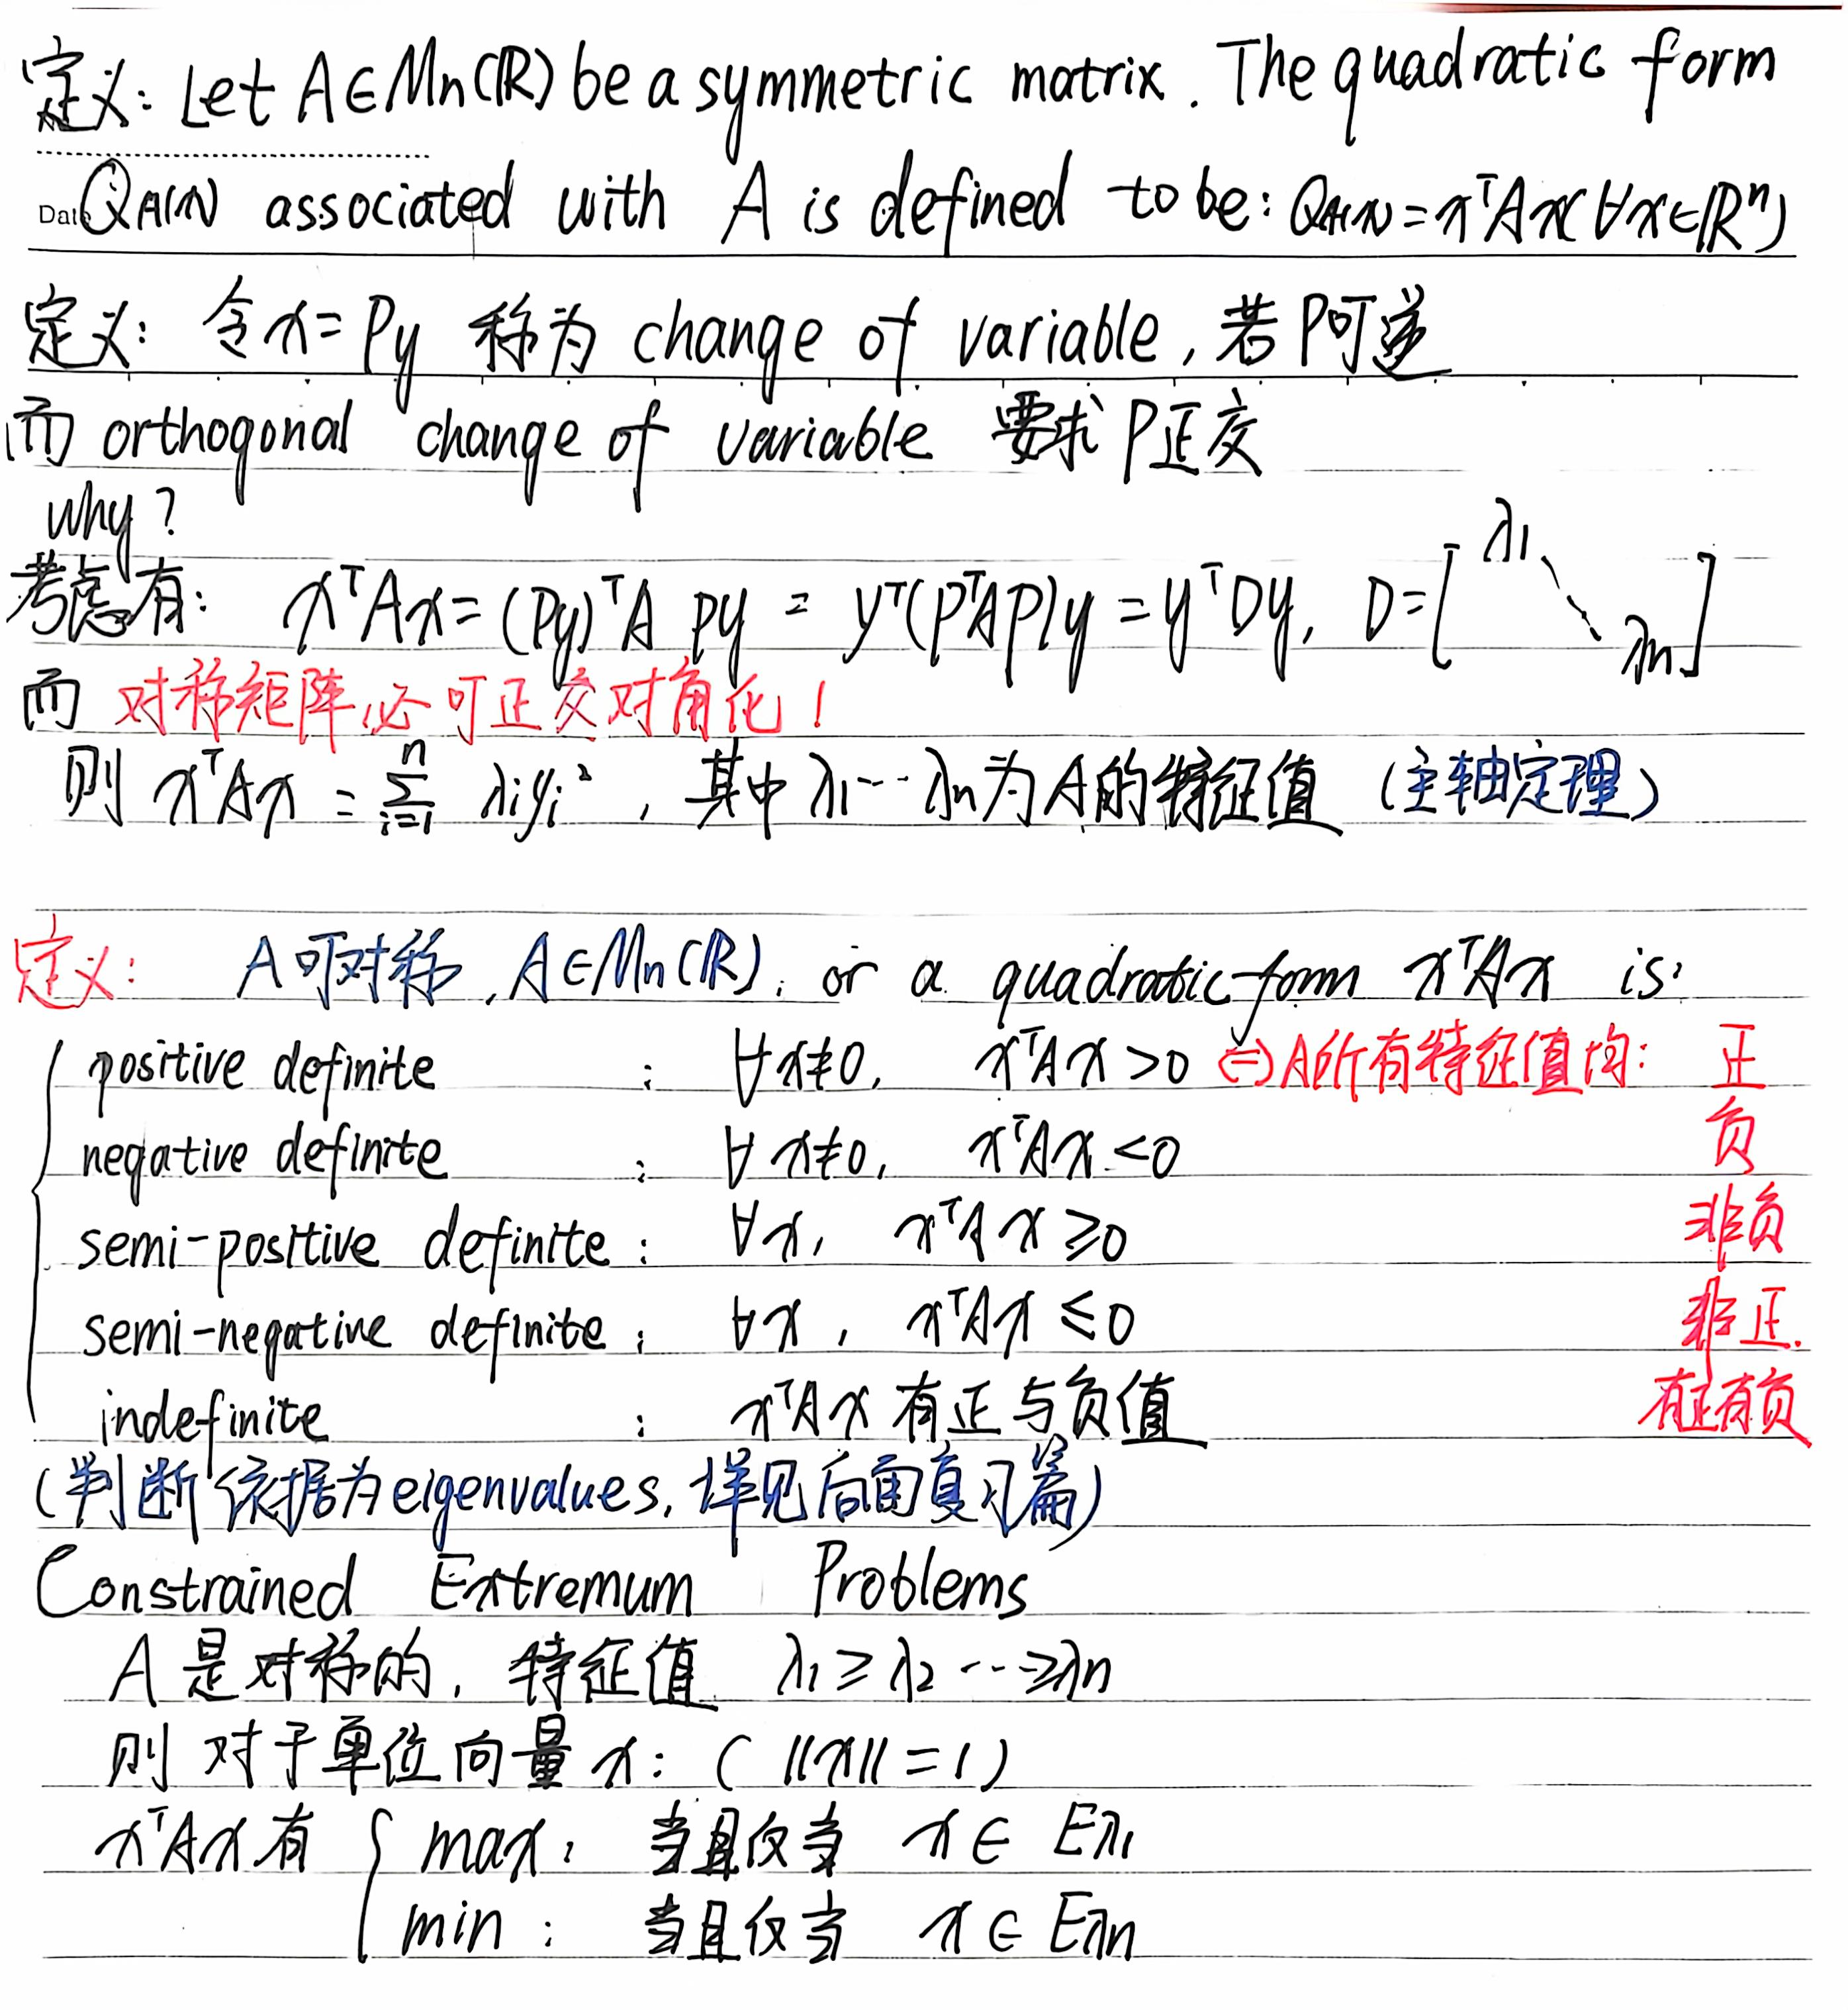 定义: Let A∈Mn(R) be a symmetric matrix. The quadratic form
Date QA(x) associated with A is defined to be: QA(x)=xᵀAx(∀x∈Rⁿ)
定义: 令x=Py 称为 change of variable, 若P可逆
而 orthogonal change of variable 要求P正交
why?
考虑有: xᵀAx=(Py)ᵀA Py = yᵀ(PᵀAP)y=yᵀDy, D=[λ1 ⋱ λn]
而 对称矩阵必可正交对角化!
则 xᵀAx = Σ_{i=1}^{n} λiyi², 其中 λ1⋯λn为A的特征值 (主轴定理)
定义: A可对称, A∈Mn(R), or a quadratic form xᵀAx is:
positive definite : ∀x≠0, xᵀAx>0 ⇔A所有特征值均: 正
negative definite : ∀x≠0, xᵀAx<0 负
semi-positive definite : ∀x, xᵀAx≥0 非负
semi-negative definite : ∀x, xᵀAx≤0 非正.
indefinite : xᵀAx 有正与负值 有正有负
(判断依据为eigenvalues, 详见后面复习篇)
Constrained Extremum Problems
A是对称的, 特征值 λ1≥λ2⋯≥λn
则 对于单位向量 x: (||x||=1)
xᵀAx有 { max: 当且仅当 x∈ Eλ1
min : 当且仅当 x∈ Eλn